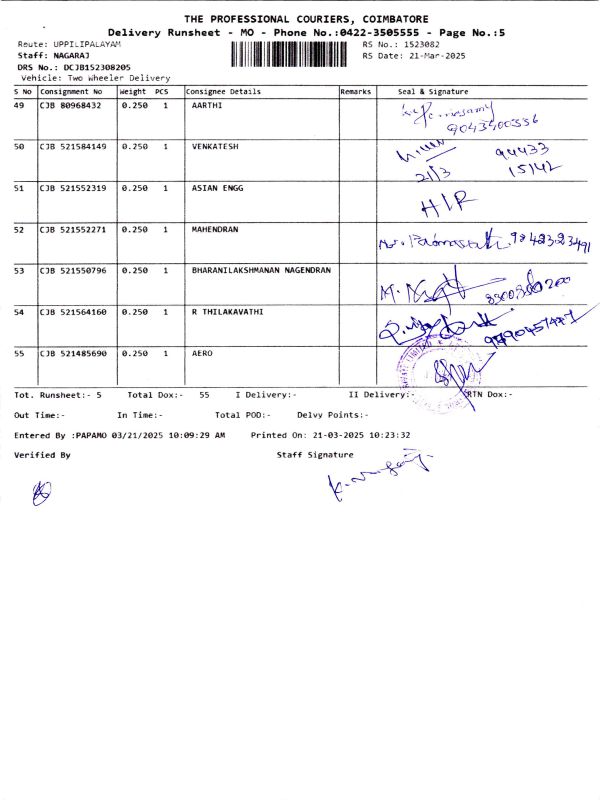 THE PROFESSIONAL COURIERS, COIMBATORE
Delivery Runsheet - MO - Phone No.:0422-3505555 - Page No.:5
Route: UPPILIPALAYAM RS No.: 1523082
Staff: NAGARAJ RS Date: 21-Mar-2025
DRS No.: DCJB152308205
Vehicle: Two Wheeler Delivery
S No Consignment No Weight PCS Consignee Details Remarks Seal & Signature
49 CJB 80968432 0.250 1 AARTHI
9043400336
50 CJB 521584149 0.250 1 VENKATESH 94433
21/3 15142
51 CJB 521552319 0.250 1 ASIAN ENGG H/R
52 CJB 521552271 0.250 1 MAHENDRAN
53 CJB 521550796 0.250 1 BHARANILAKSHMANAN NAGENDRAN
54 CJB 521564160 0.250 1 R THILAKAVATHI
55 CJB 521485690 0.250 1 AERO
Tot. Runsheet:- 5 Total Dox:- 55 I Delivery:- II Delivery:- RTN Dox:-
Out Time:- In Time:- Total POD:- Delvy Points:-
Entered By :PAPAMO 03/21/2025 10:09:29 AM Printed On: 21-03-2025 10:23:32
Verified By Staff Signature